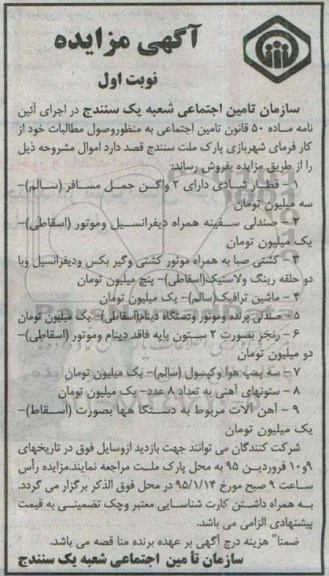 آگهی مزایده
نوبت اول
سازمان تامین اجتماعی شعبه یک سنندج در اجرای آئین
نامه ماده ۵۰ قانون تامین اجتماعی به منظوروصول مطالبات خود از
کار فرمای شهربازی پارک ملت سنندج قصد دارد اموال مشروحه ذیل
را از طریق مزایده بفروش رساند:
۱- قطار شادی دارای ۲ واگن حمل مسافر (سالم)-
سه میلیون تومان
۲- صندلی سفینه همراه دیفرانسیل وموتور (اسقاطی)-
یک میلیون تومان
۳- کشتی صبا به همراه موتور کشتی وگیر بکس ودیفرانسیل وبا
دو حلقه رینگ ولاستیک(اسقاطی)- پنج میلیون تومان
۴- ماشین ترافیک(سالم)- یک میلیون تومان
۵- صندلی پرنده وموتور ودستگاه دینام(اسقاطی)- یک میلیون تومان
۶- رنجر بصورت ۲ ستون پایه فاقد دینام وموتور (اسقاطی)-
دو میلیون تومان
۷- سه پمپ هوا وکپسول (سالم)- یک میلیون تومان
۸- ستونهای آهنی به تعداد ۸ عدد- یک میلیون تومان
۹- آهن آلات مربوط به دستگا هها بصورت (اسقاط)-
یک میلیون تومان
شرکت کنندگان می توانند جهت بازدید ازوسایل فوق در تاریخهای
۹و۱۰ فروردین ۹۵ به محل پارک ملت مراجعه نمایند.مزایده رأس
ساعت ۹ صبح مورخ ۹۵/۱/۱۴ در محل فوق الذکر برگزار می گردد.
به همراه داشتن کارت شناسایی معتبر وچک تضمینی به قیمت
پیشنهادی الزامی می باشد.
ضمنا" هزینه درج آگهی بر عهده برنده منا قصه می باشد.
سازمان تأ مین اجتماعی شعبه یک سنندج